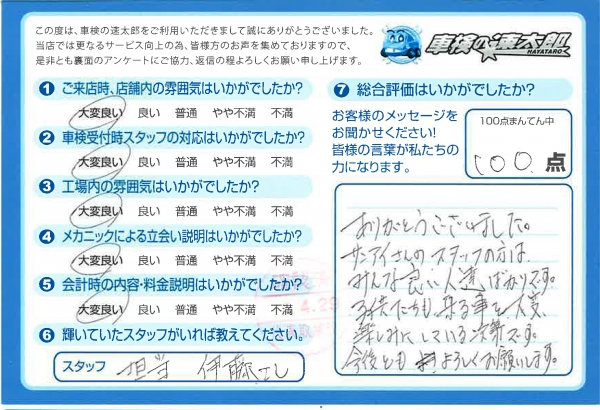 この度は、車検の速太郎をご利用いただきまして誠にありがとうございました。
当店では更なるサービス向上の為、皆様方のお声を集めておりますので、
是非とも裏面のアンケートにご協力、返信の程よろしくお願い申し上げます。
車検の速太郎
HAYATARO
1 ご来店時、店舗内の雰囲気はいかがでしたか?
大変良い 良い 普通 やや不満 不満
2 車検受付時スタッフの対応はいかがでしたか?
大変良い 良い 普通 やや不満 不満
3 工場内の雰囲気はいかがでしたか?
大変良い 良い 普通 やや不満 不満
4 メカニックによる立会い説明はいかがでしたか?
大変良い 良い 普通 やや不満 不満
5 会計時の内容・料金説明はいかがでしたか?
大変良い 良い 普通 やや不満 不満
4.29
6 輝いていたスタッフがいれば教えてください。
スタッフ 担当 伊藤さん
7 総合評価はいかがでしたか?
お客様のメッセージを
お聞かせください!
皆様の言葉が私たちの
力になります。
100点まんてん中
100 点
ありがとうございました。
サンアイさんのスタッフの方は
みんな良い人達ばかりです。
子供たちも、来る事を大変
楽しみにしている次第です。
今後とも よろしくお願いします。